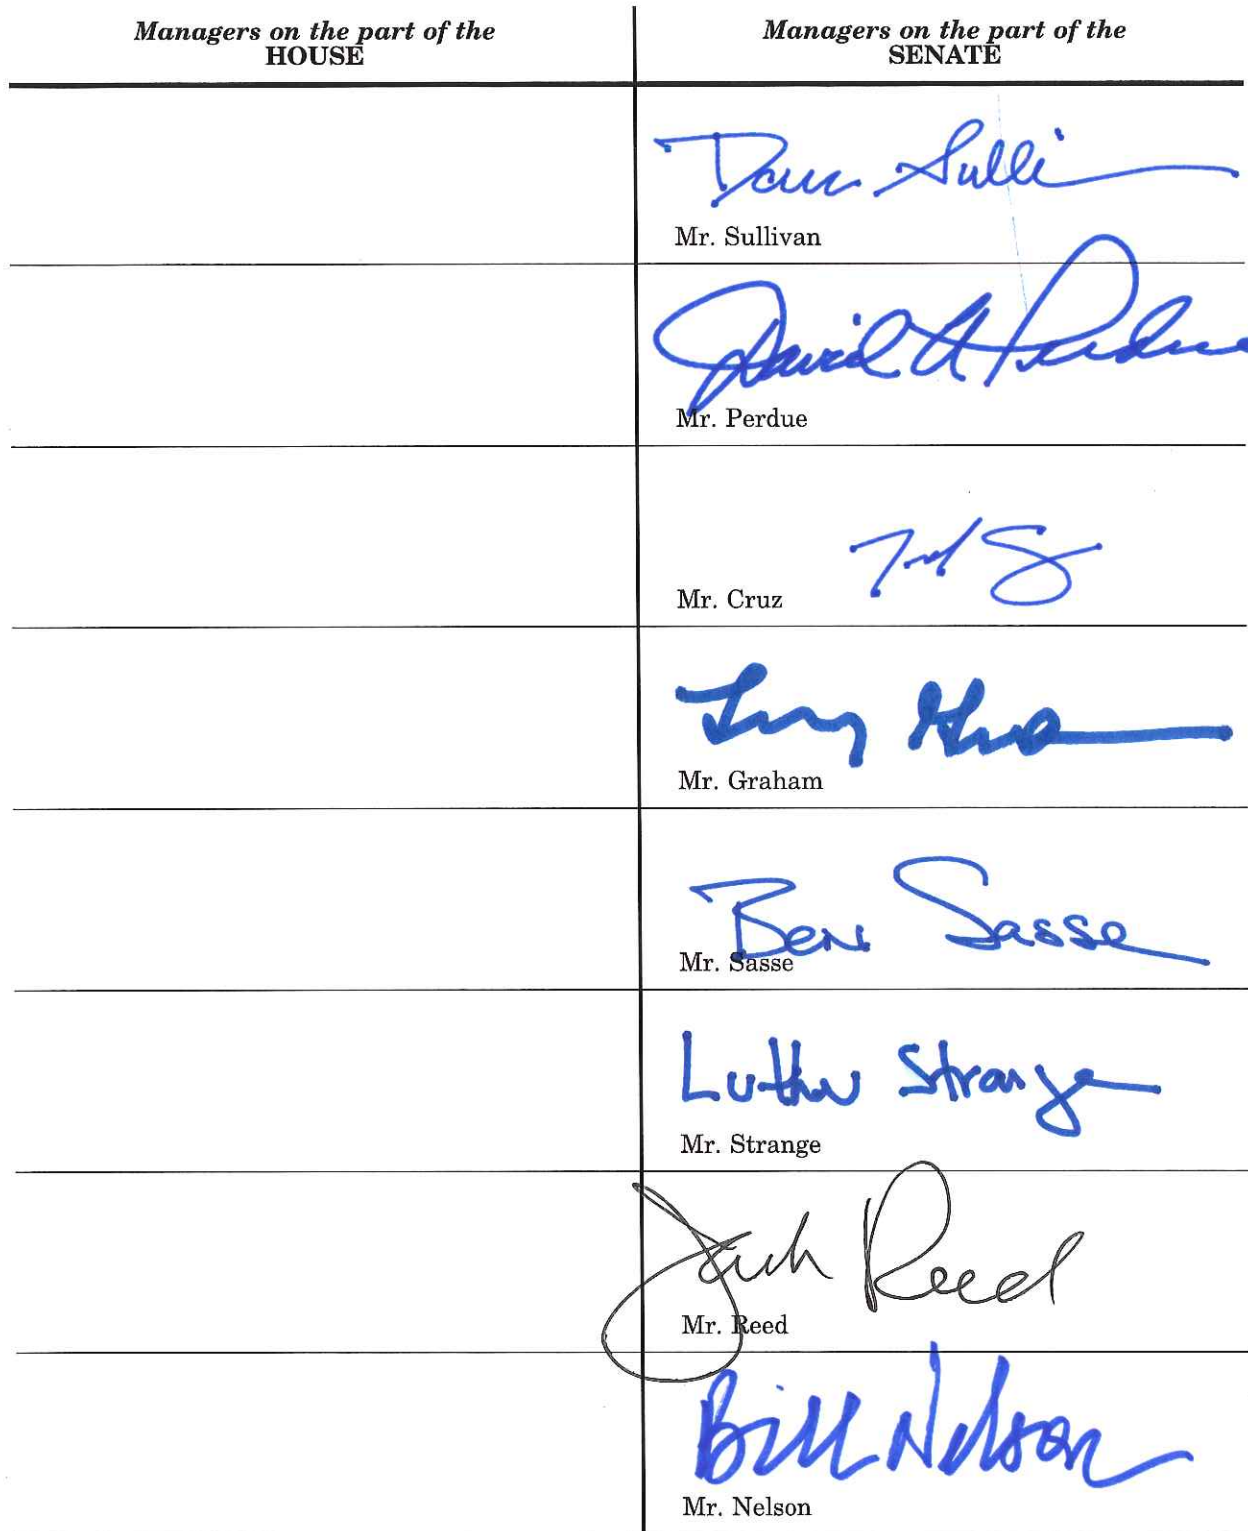 Managers on the part of the
HOUSE
Managers on the part of the
SENATE
Dan Sulli
Mr. Sullivan
David A Perdue
Mr. Perdue
Mr. Cruz
Mr. Graham
Ben Sasse
Mr. Sasse
Luther Strange
Mr. Strange
Jack Reed
Mr. Reed
Bill Nelson
Mr. Nelson